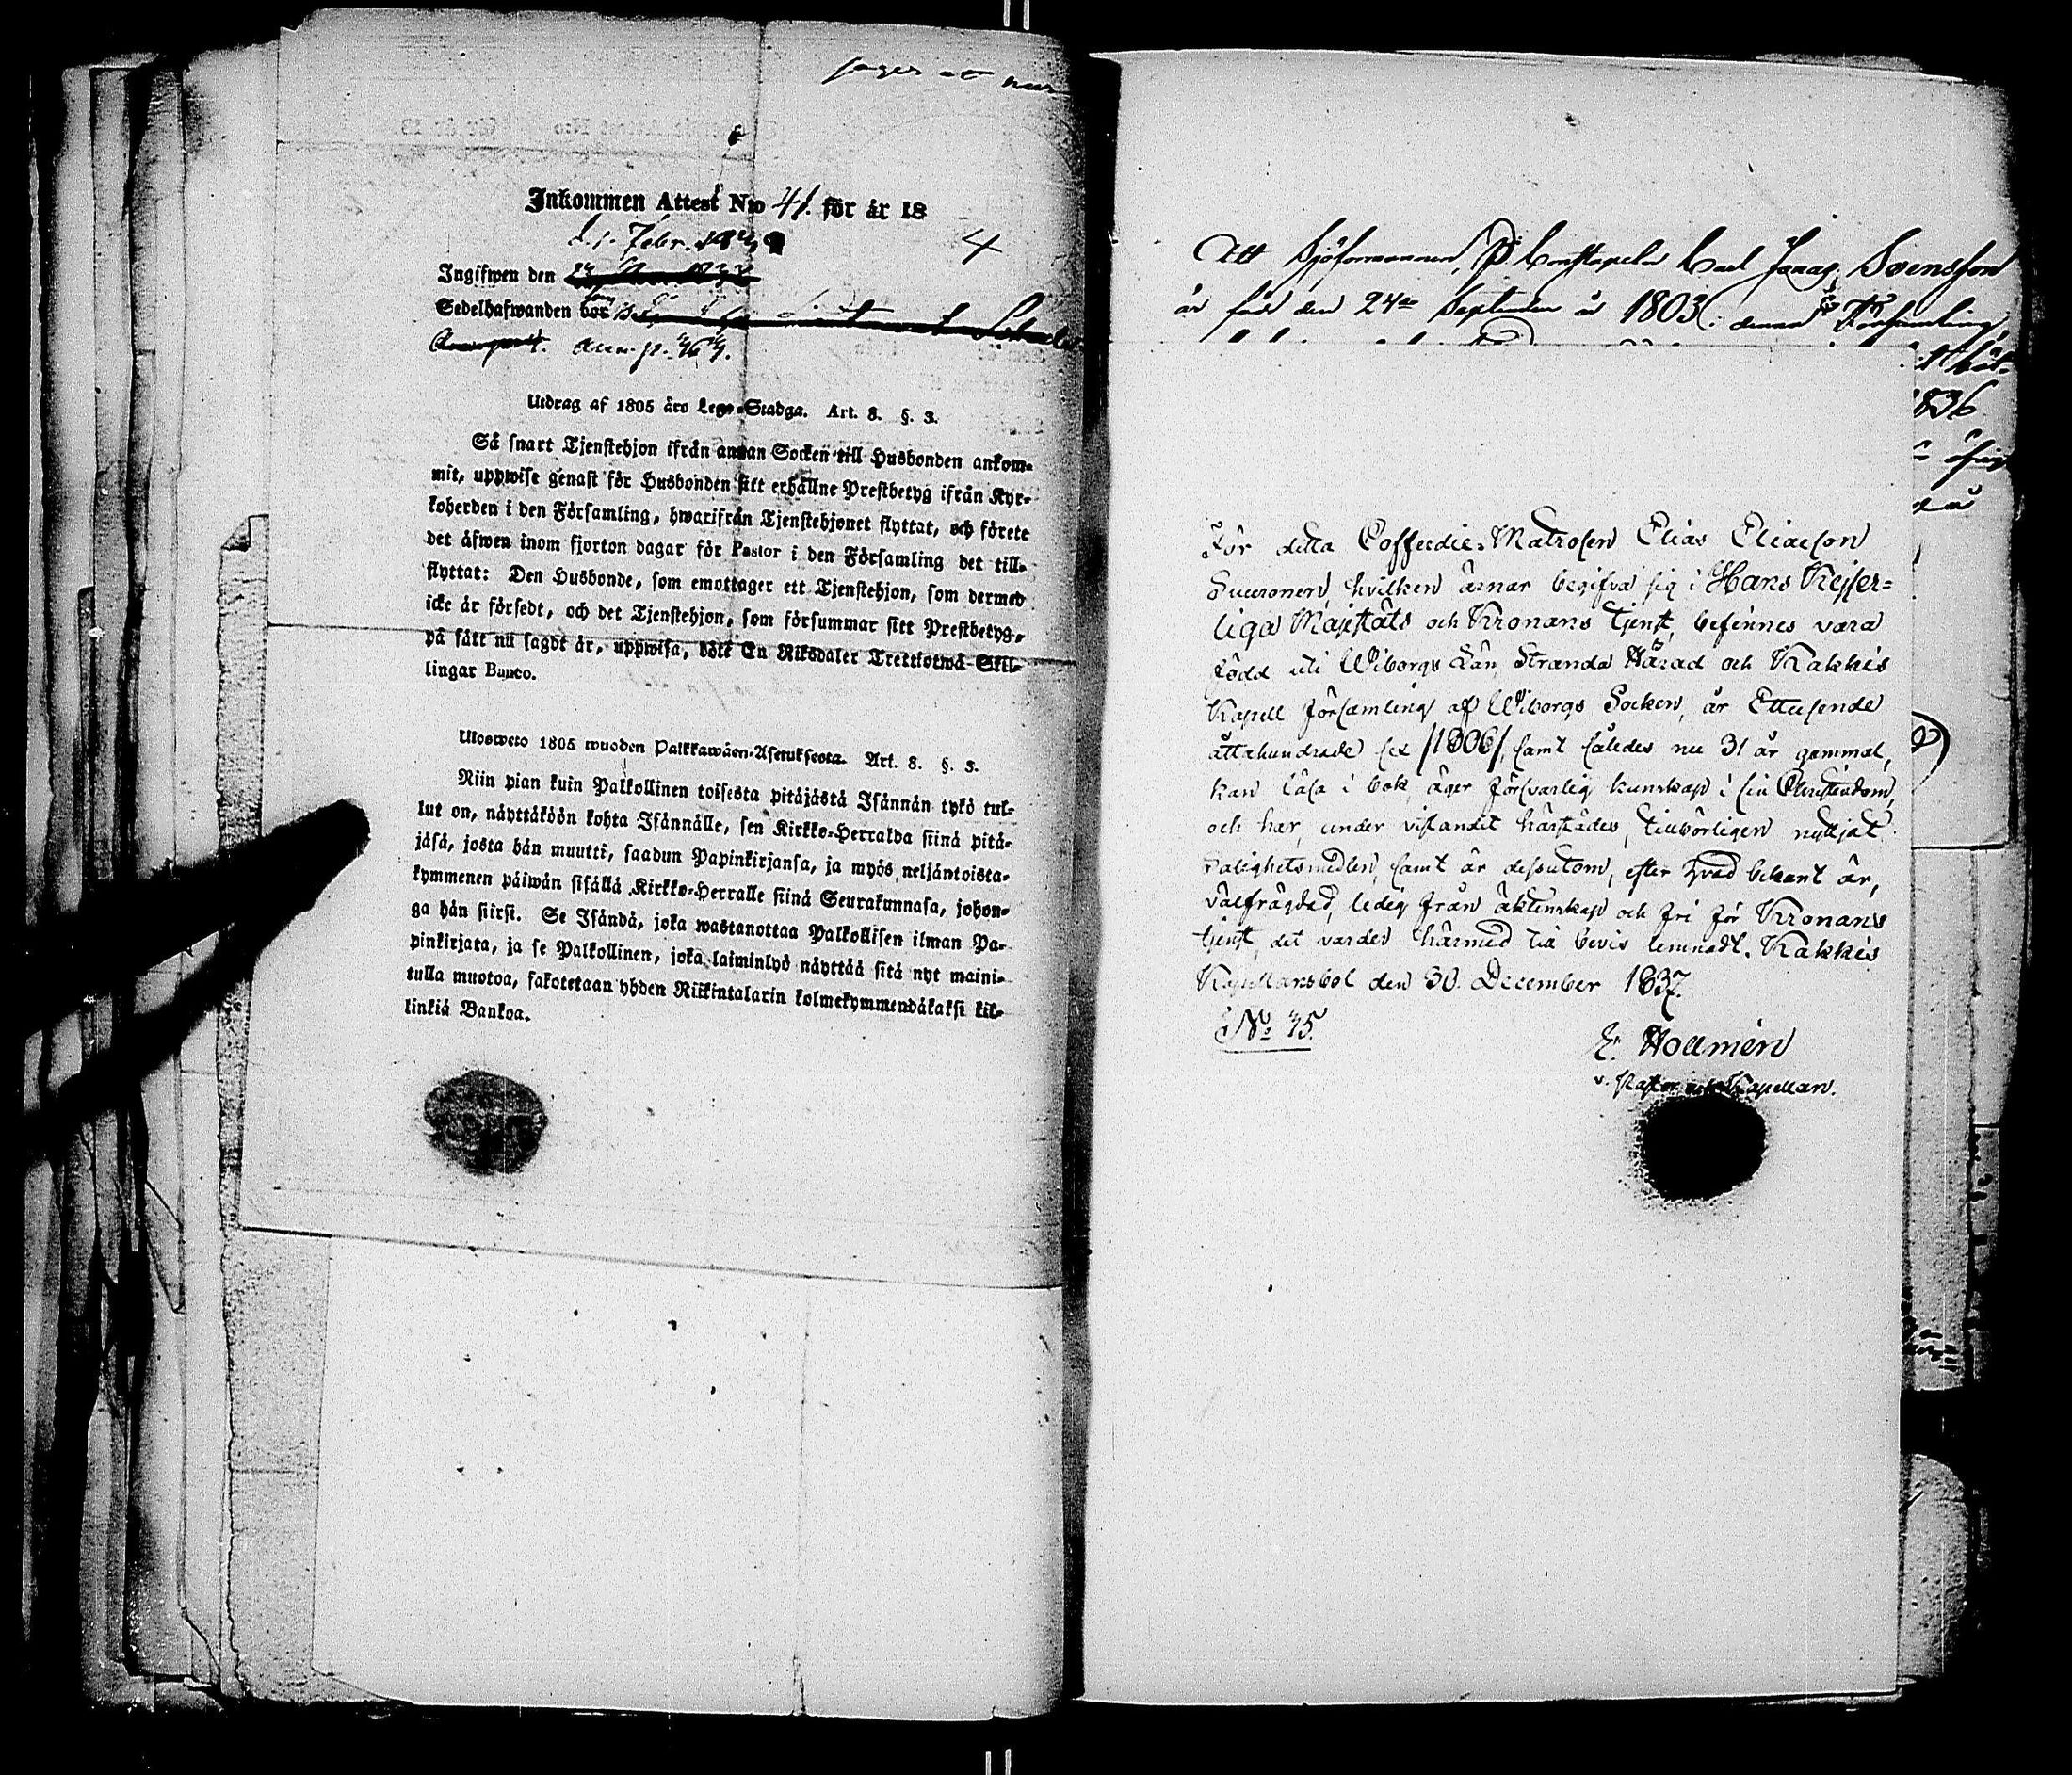 Inkommen Attest No 41. för år 18
d. 1. Febr.
4
Ingifwen den
Sedelhafwanden bor
Utdrag af 1805 års Lego-Stadga. Art. 8. §. 3.
Så snart Tjenstehjon ifrån annan Socken till Husbonden ankom-
mit, uppwise genast för Husbonden sitt erhållne Prestbetyg ifrån Kyr-
koherden i den Församling, hwarifrån Tjenstehjonet flyttat, och förete
det äfwen inom fjorton dagar för Pastor i den Församling det till-
flyttat: Den Husbonde, som emottager ett Tjenstehjon, som dermed
icke är försedt, och det Tjenstehjon, som försummar sitt Prestbetyg,
på sätt nu sagdt är, uppwisa, böte En Riksdaler Trettiotwå Skil-
lingar Banco.
Ulosweto 1805 wuoden Palkkawäen-Asetuksesta. Art. 8. §. 3.
Niin pian kuin Palkollinen toisesta pitäjästä Isännän tykö tul-
lut on, näyttäköön kohta Isännälle, sen Kirkko-Herralda siinä pitä-
jäsä, josta hän muutti, saadun Papinkirjansa, ja myös neljäntoista-
kymmenen päiwän sisällä Kirkko-Herralle siinä Seurakunnasa, johon-
ga hän siirsi. Se Isändä, joka wastanottaa Palkollisen ilman Pa-
pinkirjata, ja se Palkollinen, joka laiminlyö näyttää sitä nyt maini-
tulla muotoa, sakotetaan yhden Riikintalarin kolmekymmendäkaksi kil-
linkiä Bankoa.
Att Sjöformannen, Constapeln Carl Jonas Svensson
är född den 24de September år 1803 i denna Församling,
1836
För detta Cofferdie-Matrosen Elias Eliaeson
Suuronen, hvilken ärnar begifva sig i Hans Kejser-
liga Majestäts och Kronans tjenst, befinnes vara
född uti Wiborgs Län, Stranda Härad och Kakkis
Kapell församling af Wiborgs Socken, år Ettusende
åttahundrade sex /1806/, samt således nu 31 år gammal,
kan läsa i bok, äger försvarlig kunskap i sin Christendom,
och har, under vistandet härstädes, tillbörligen nyttjat
Salighetsmedlen, samt är dessutom, efter hvad bekant är,
välfrägdad, ledig från äktenskap och fri för Kronans
tjenst, det varder härmed till bevis lemnadt. Kakkis
Kapellansbol den 30. December 1837.
No 35.
E. Hollmén
v. Pastor och Kapellan.